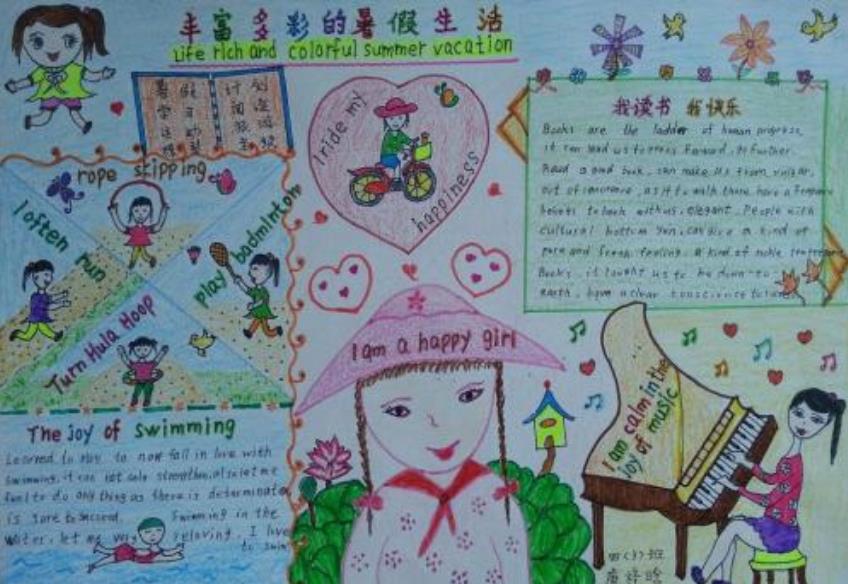 丰富多彩的暑假生活
Life rich and colorful summer vacation
rope skipping
I often run
play badminton
Turn Hula Hoop
I ride my
happiness
我读书 我快乐
Books are the ladder of human progress,
it can lead us to press forward, go further.
Read a good book, can make us from vulgar,
out of ignorance, as if to walk there, have a
to look with us, elegant. People with
cultural bottom can give a kind of
pure and fresh feeling, a kind of noble
Books, it taught us to be down-to-
earth, have a clear conscience to
I am a happy girl
I am calm in the
joy of music
The joy of swimming
Learned to to now fall in love with
swimming, it can not only strengthen, also let me
feel to do anything as there is
is sure to succeed. Swimming in the
Water, let me very relaxing, I love
to swim
四(3)班